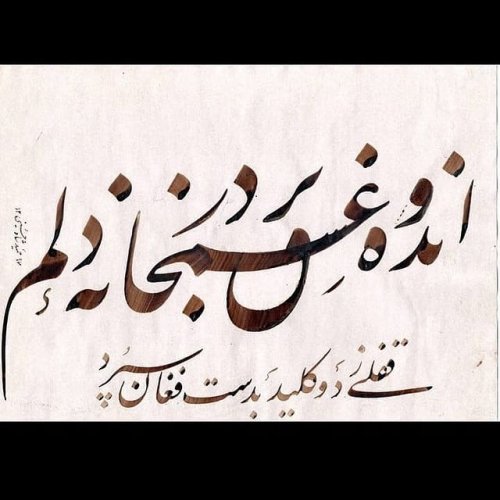 اندوه عشق بر در غمخانه دلم
قفلی زد و کلید بدست فغان سپرد